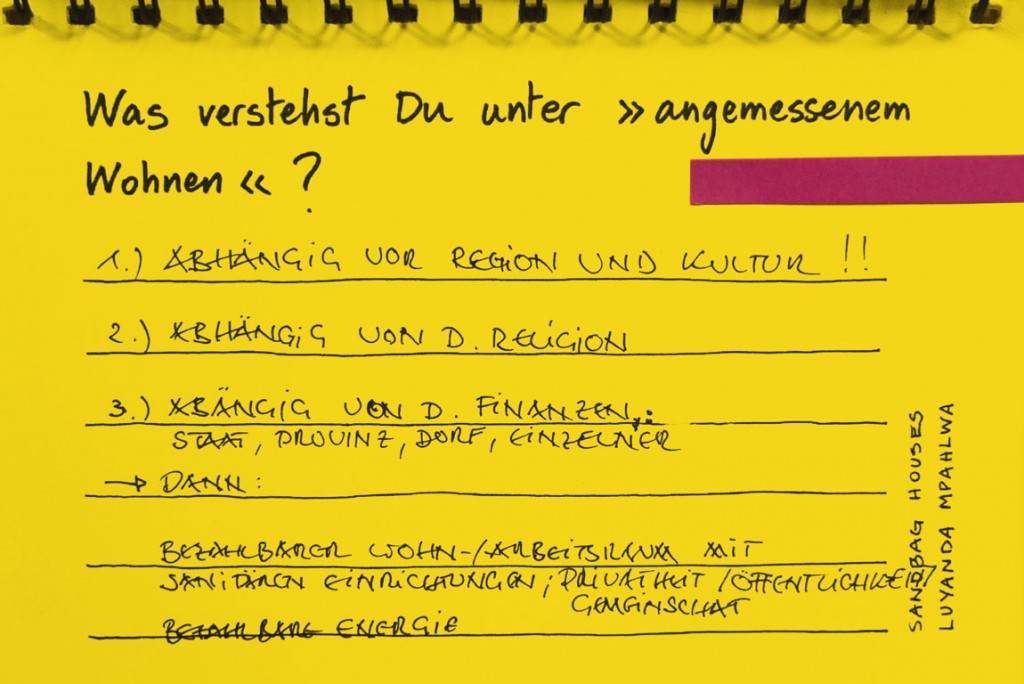 Was verstehst Du unter »angemessenem
Wohnen«?
1.) ABHÄNGIG VOR REGION UND KULTUR !!
2.) ABHÄNGIG VON D. RELIGION
3.) ABÄNGIG VON D. FINANZEN,:
STAAT, PROVINZ, DORF, EINZELNER
→ DANN:
BEZAHLBARER WOHN-/ARBEITSRAUM MIT
SANITÄREN EINRICHTUNGEN; PRIVATHEIT /ÖFFENTLICHKEIT/
GEMEINSCHAT
BEZAHLBARE ENERGIE
SANDBAG HOUSES
LUYANDA MPAHLWA